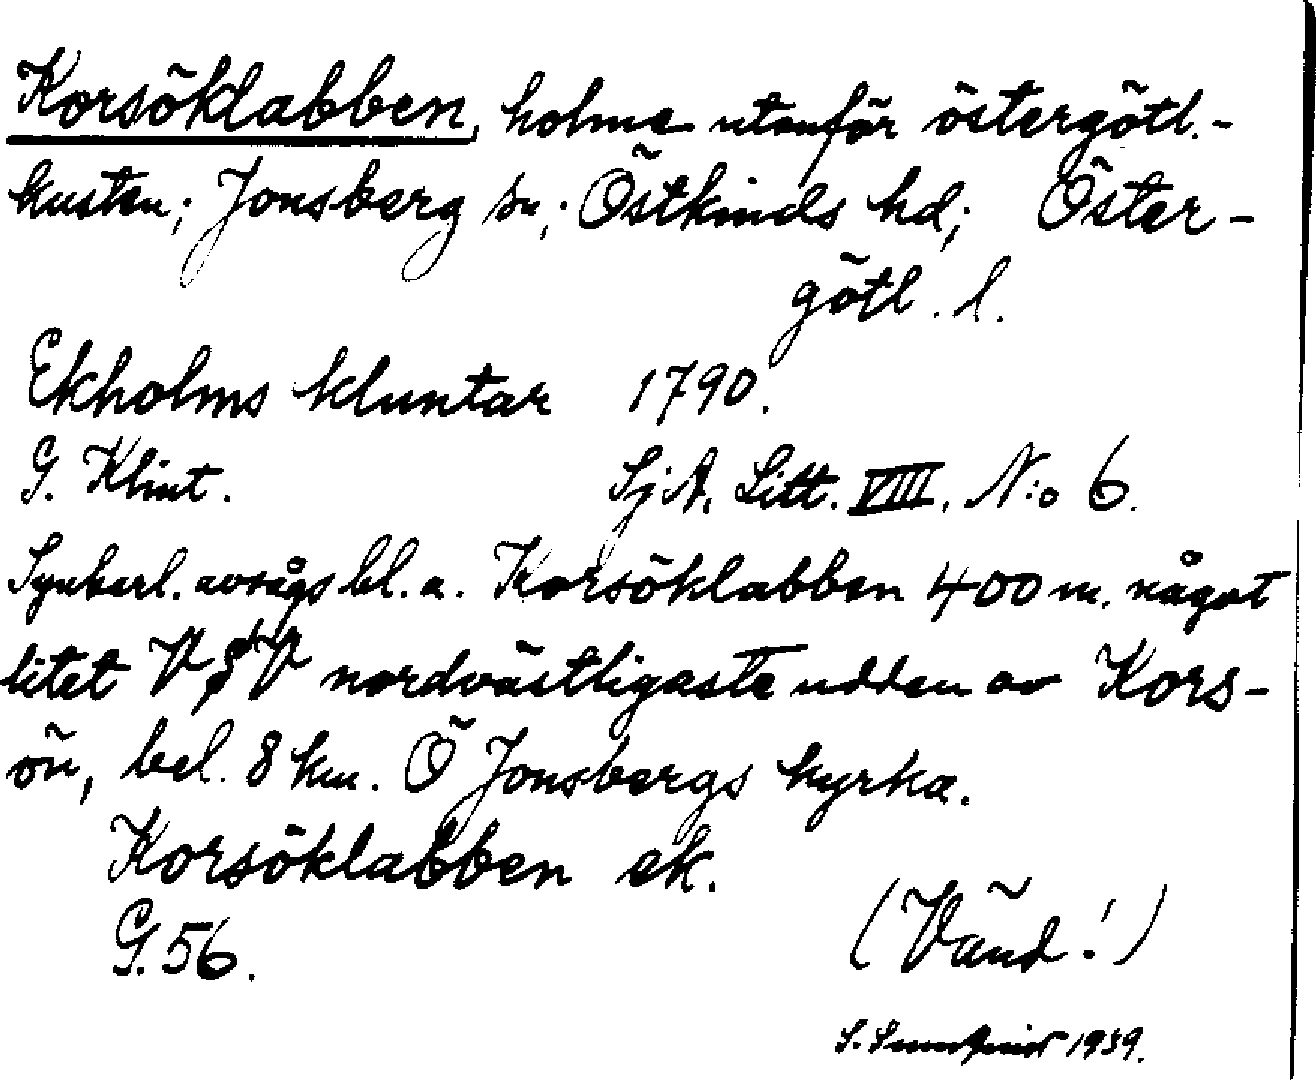 Korsöklabben, holme utanför östergötl.-
kusten; Jonsberg sn; Östkinds hd; Öster-
götl. l.
Ekholms kluntar 1790.
G. Klint. SjA, Litt. VIII, N:o 6.
Synbarl. avsågs bl. a. Korsöklabben 400 m. något
litet V om nordvästligaste udden av Kors-
ön, bel. 8 km. Ö Jonsbergs kyrka.
Korsöklabben ek.
G. 56.
(Vänd!)
S. 1939.